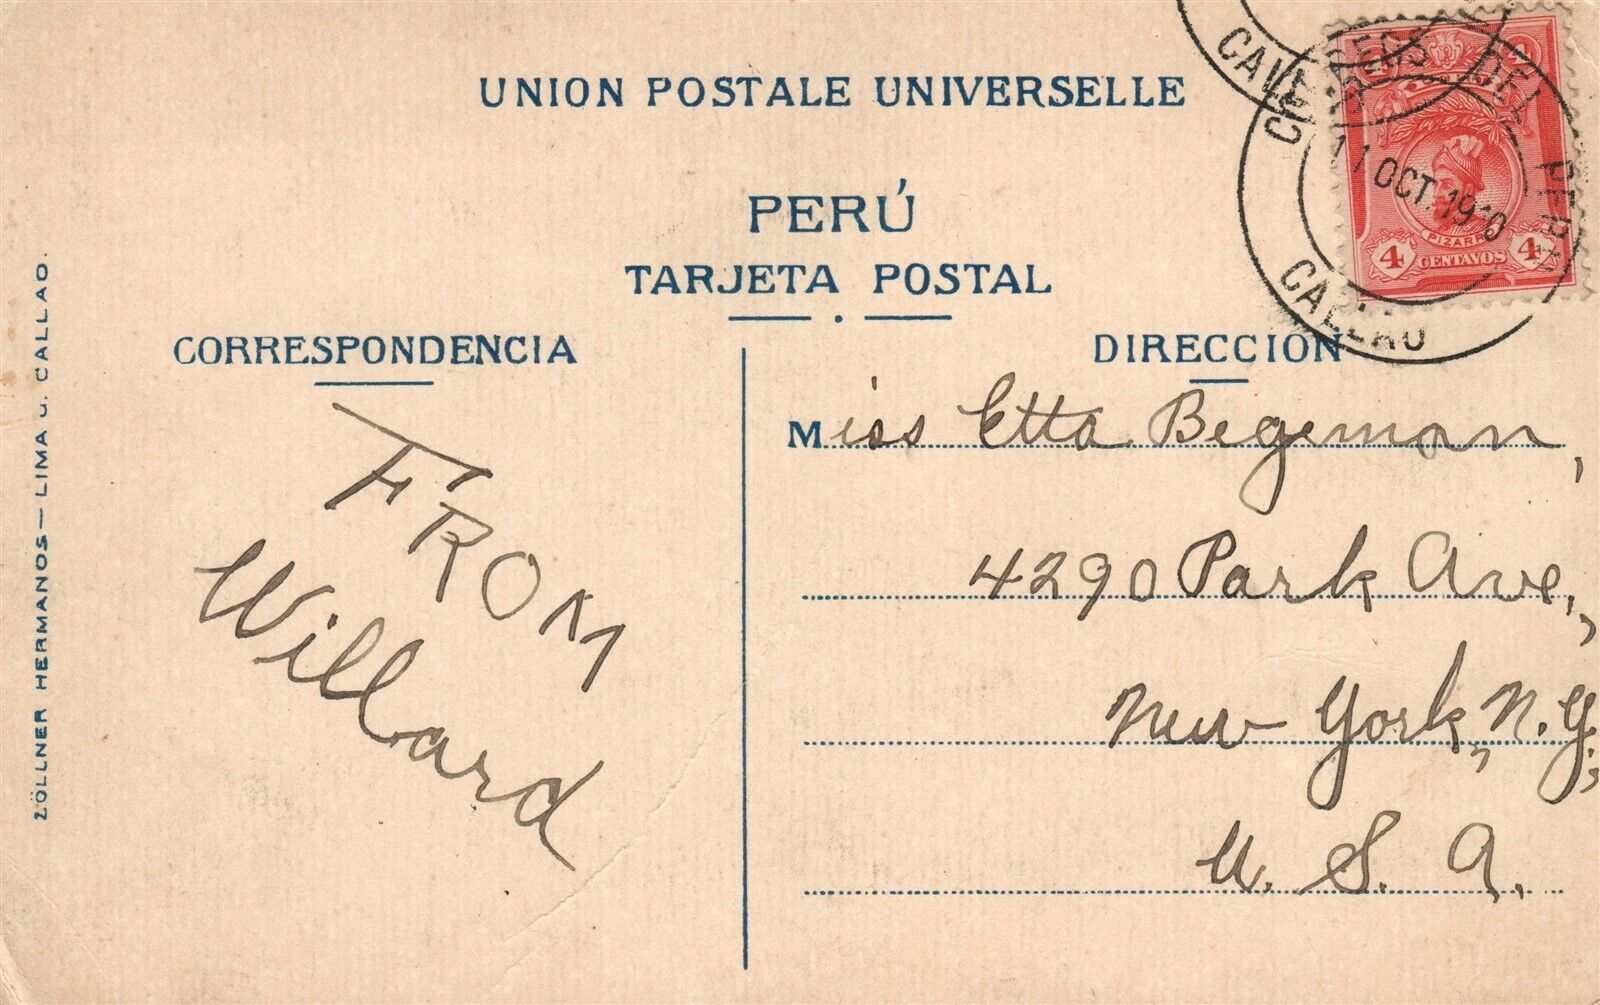 UNION POSTALE UNIVERSELLE
PERÚ
TARJETA POSTAL
CORRESPONDENCIA
DIRECCION
FROM
Willard
Miss Etta Begeman,
4290 Park Ave.,
New York, N.Y.,
U. S. A.
ZÖLLNER HERMANOS — LIMA u. CALLAO.
DEL PERU
11 OCT. 1910
CALLAO
PIZARRO
4 CENTAVOS 4